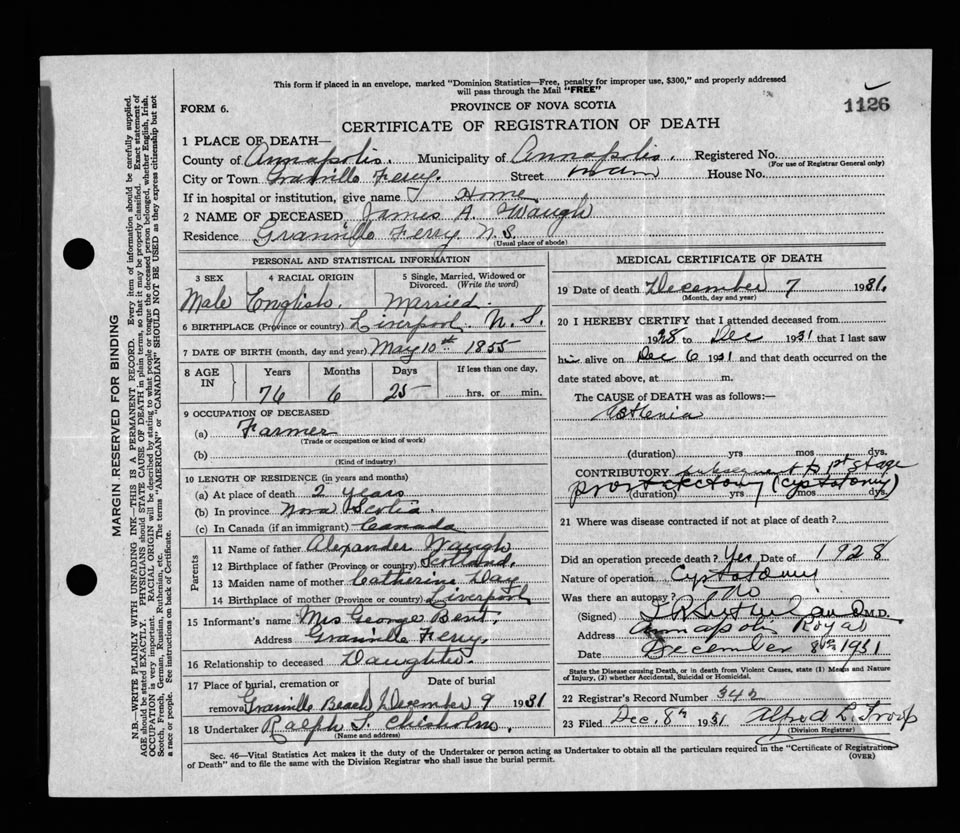 This form if placed in an envelope, marked "Dominion Statistics—Free, penalty for improper use, $300," and properly addressed
will pass through the Mail "FREE"
1126
FORM 6.
PROVINCE OF NOVA SCOTIA
CERTIFICATE OF REGISTRATION OF DEATH
1 PLACE OF DEATH—
County of Annapolis. Municipality of Annapolis. Registered No.
(For use of Registrar General only)
City or Town Granville Ferry. Street House No.
If in hospital or institution, give name Home
2 NAME OF DECEASED James A. Waugh
Residence Granville Ferry N.S.
(Usual place of abode)
PERSONAL AND STATISTICAL INFORMATION
3 SEX
Male
4 RACIAL ORIGIN
English.
5 Single, Married, Widowed or
Divorced. (Write the word)
Married.
6 BIRTHPLACE (Province or country) Liverpool. N.S.
7 DATE OF BIRTH (month, day and year) May 10th 1855
8 AGE
IN
Years Months Days
76 6 25
If less than one day,
hrs. or min.
9 OCCUPATION OF DECEASED
(a) Farmer
(Trade or occupation or kind of work)
(b)
(Kind of industry)
10 LENGTH OF RESIDENCE (in years and months)
(a) At place of death 2 years
(b) In province Nova Scotia.
(c) In Canada (if an immigrant) Canada
Parents
11 Name of father Alexander Waugh
12 Birthplace of father (Province or country) Scotland.
13 Maiden name of mother Catherine Day
14 Birthplace of mother (Province or country) Liverpool
15 Informant's name Mrs George Bent.
Address Granville Ferry.
16 Relationship to deceased Daughter.
17 Place of burial, cremation or
removal Granville Beach
Date of burial
December 9 1931
18 Undertaker Ralph S. Chisholm.
(Name and address)
MEDICAL CERTIFICATE OF DEATH
19 Date of death December 7 1931.
(Month, day and year)
20 I HEREBY CERTIFY that I attended deceased from
1928 to Dec 1931 that I last saw
him alive on Dec 6 1931 and that death occurred on the
date stated above, at m.
The CAUSE of DEATH was as follows:—
Asthenia
(duration) yrs mos dys.
CONTRIBUTORY subsequent to 1st stage
prostatectomy (cystotomy)
(duration) yrs mos dys.
21 Where was disease contracted if not at place of death?
Did an operation precede death? Yes Date of 1928
Nature of operation Cystotomy
Was there an autopsy? No
(Signed) M.D.
Address Annapolis Royal
Date December 8th 1931
State the Disease causing Death, or in death from Violent Causes, state (1) Means and Nature
of Injury, (2) whether Accidental, Suicidal or Homicidal.
22 Registrar's Record Number
23 Filed Dec. 8th 1931 Alfred L. Troop
(Division Registrar)
Sec. 46—Vital Statistics Act makes it the duty of the Undertaker or person acting as Undertaker to obtain all the particulars required in the "Certificate of Registration
of Death" and to file the same with the Division Registrar who shall issue the burial permit.
(OVER)
MARGIN RESERVED FOR BINDING
N.B.—WRITE PLAINLY WITH UNFADING INK—THIS IS A PERMANENT RECORD. Every item of information should be carefully supplied.
AGE should be stated EXACTLY. PHYSICIANS should STATE CAUSE OF DEATH in plain terms, so that it may be properly classified. Exact statement of
OCCUPATION is very important. RACIAL ORIGIN will be described by stating to what people or tongue the deceased person belonged, whether English, Irish,
Scotch, French, German, Russian, Ruthenian, etc. The terms "AMERICAN" or "CANADIAN" SHOULD NOT BE USED as they express citizenship but not
a race or people. See instructions on back of Certificate.